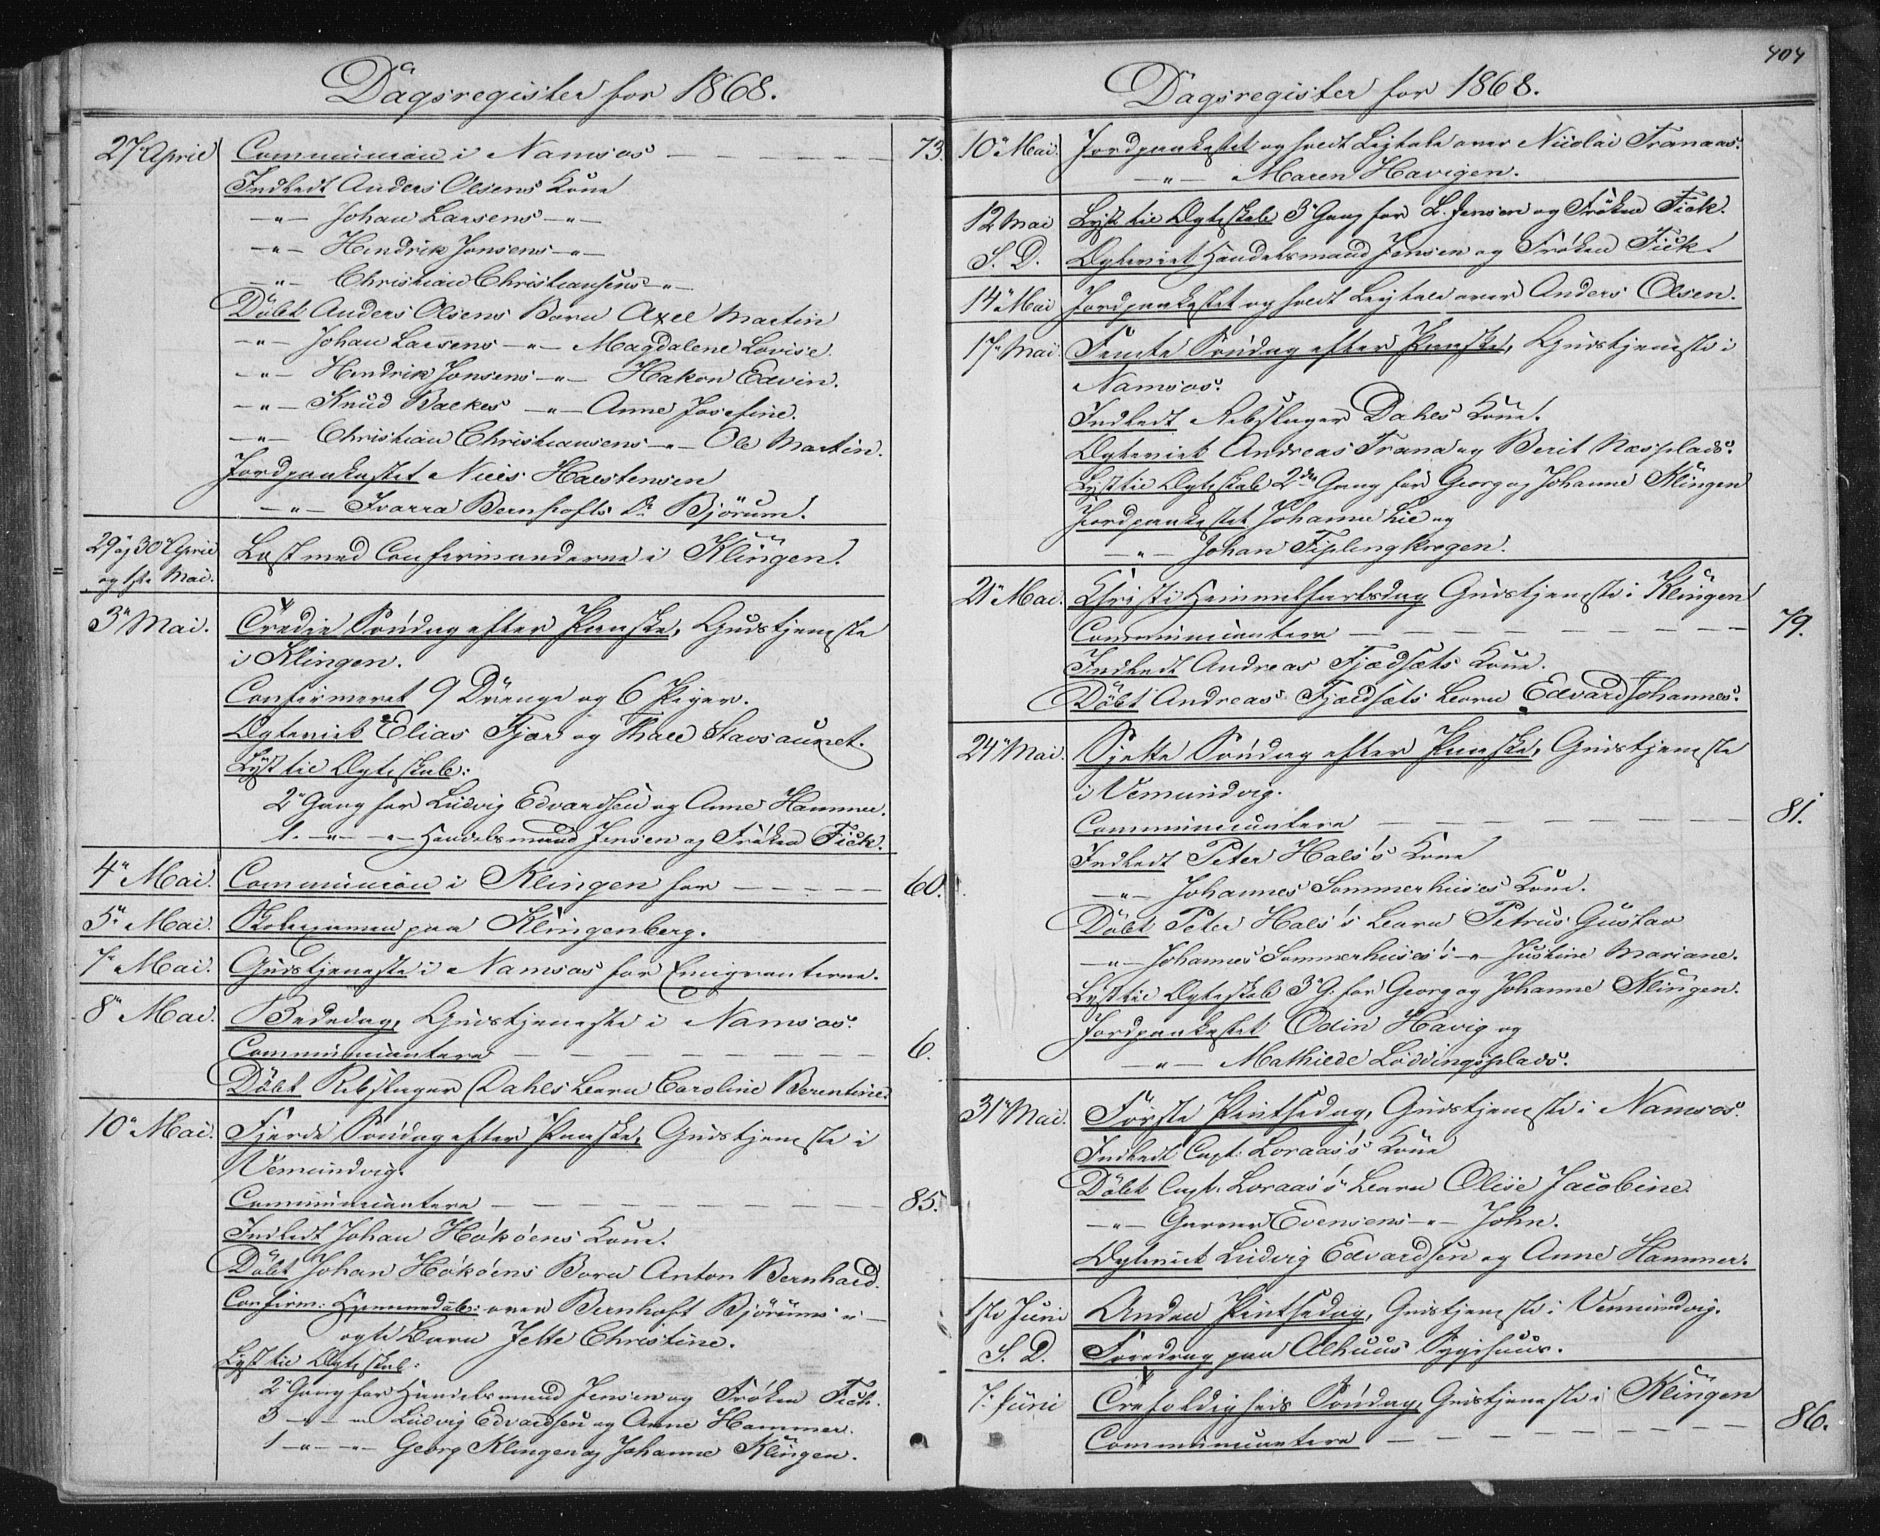 Dagsregister for 1868.
27 April Communion i Namsos — — — — — 73.
Indledt Anders Olsens Kone
—"— Johan Larsens —"—
—"— Hendrik Jonsens —"—
—"— Christian Christiansens —"—
Döbt Anders Olsens Barn Axel Martin
—"— Johan Larsens —"— Magdalene Lovise.
—"— Hendrik Jonsens —"— Hakon Edvin.
—"— Knud Backes —"— Anne Josefine.
—"— Christian Christiansens —"— Ole Martin.
Jordpaakastet Niels Karstensen
—"— Bernhofts D. Björum.
29 og 30 April Læst med Confirmanderne i Klingen.
og 1ste Mai.
3 Mai. Tredie Söndag efter Paaske, Gudstjeneste
i Klingen.
Confirmeret 9 Drenge og 6 Piger.
Ægteviet Elias Fjær og Stavsaunet.
Lyst til Ægteskab:
2 Gang for Ludvig Edvardsen og Anne Hammer.
1. —"— —"— Handelsmand Jensen og Fröken Fick.
4 Mai. Communion i Klingen for — — — — 60.
5 Mai. Skolexamen paa Klingenberg.
7 Mai. Gudstjeneste i Namsos for Emigranterne.
8 Mai. Bededag, Gudstjeneste i Namsos.
Communicantere — — — — — — 6.
Döbt Rebslager Dahls Barn Caroline Berentine.
10 Mai. Fjerde Söndag efter Paaske, Gudstjeneste i
Vemundvig.
Communicantere — — — — — — 85.
Indledt Johan Hököens Kone.
Döbt Johan Hököens Barn Anton Bernhard.
Confirm: Hjemmedöbt: over Bernhoft Björums
ægte Barn Jette Christine.
Lyst til Ægteskab:
2 Gang for Handelsmand Jensen og Fröken Fick.
3 —"— —"— Ludvig Edvardsen og Anne Hammer.
1 —"— —"— Georg Klingen og Johanne Klingen.
404
Dagsregister for 1868.
10 Mai. Jordpaakastet og holdt Ligtale over Nicolai Tranaas.
—"— Maren Havigen.
12 Mai Lyst til Ægteskab 3 Gang for L. Jensen og Fröken Fick.
S. D. Ægteviet Handelsmand Jensen og Fröken Fick.
14 Mai Jordpaakastet og holdt Ligtale over Anders Olsen.
17 Mai. Femte Söndag efter Paaske, Gudstjeneste i
Namsos.
Indledt Rebslager Dahls Kone.
Ægteviet Andreas Trana og Berit Næsplads.
Lyst til Ægteskab 2den Gang for Georg og Johanne Klingen
Jordpaakastet Johanne Lie og
—"— Johan
21 Mai. Christi Himmelfartsdag Gudstjeneste i Klingen
Communicantere — — — — — — 79.
Indledt Andreas Fjeldsets Kone.
Döbt Andreas Fjeldsets Barn Edvard Johannes.
24 Mai. Sjette Söndag efter Paaske, Gudstjeneste
i Vemundvig.
Communicantere — — — — — — 81.
Indledt Peter Hals's Kone
—"— Johannes Sommerhuses Kone.
Döbt Peter Hals's Barn Petrus Gustav
—"— Johannes Sommerhuses's —"— Justine Mariane.
Lyst til Ægteskab 3 G. for Georg og Johanne Klingen.
Jordpaakastet Odin Havig og
—"— Mathilde Löddingsplads.
31 Mai. Förste Pintsedag, Gudstjeneste i Namsos.
Indledt Capt. Loraas's Kone
Döbt Capt. Loraas's Barn Olise Jacobine.
—"— Garver Evensens —"— John.
Ægteviet Ludvig Edvardsen og Anne Hammer.
1ste Juni Anden Pintsedag, Gudstjeneste i Vemundvig.
S. D. Foredrag paa Alhuus Sygehuus.
7. Juni Trefoldigheds Söndag, Gudstjeneste i Klingen
Communicantere — — — — — — 86.